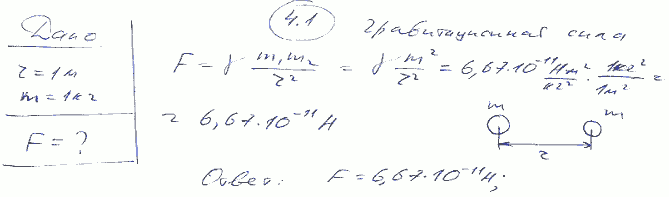 4.1
Дано
r = 1м
m = 1кг
F = ?
гравитационная сила
F = γ m₁m₂/r² = γ m²/r² = 6,67·10⁻¹¹ Нм²/кг² · 1кг²/1м² =
= 6,67·10⁻¹¹ Н
m m
r
Ответ: F = 6,67·10⁻¹¹ Н;